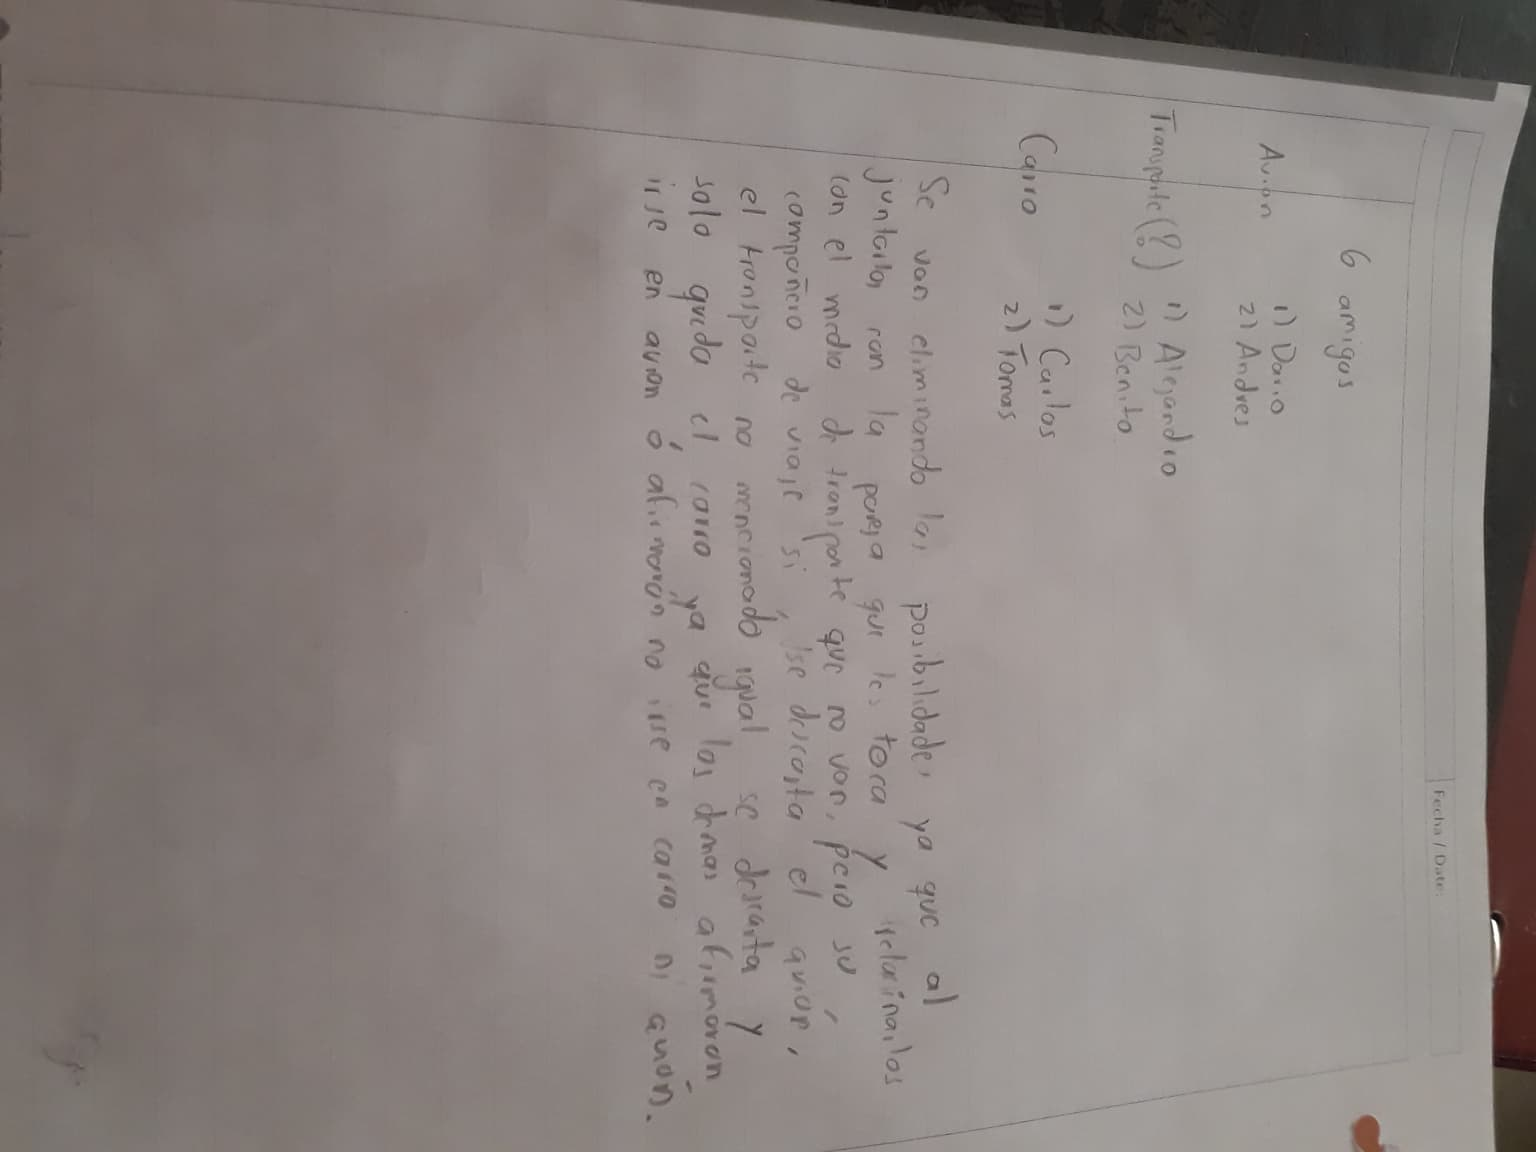 Fecha / Date:
6 amigos
Avion 1) Dario
2) Andres
Transporte (?) 1) Alejandro
2) Benito
Carro 1) Carlos
2) Tomas
Se van eliminando las posibilidades ya que al
juntarlos con la pareja que les toca y relacinarlos
con el medio de transporte que no van, pero su
compañero de viaje si, se descarta el avión,
el transporte no mencionado igual se descarta y
solo queda el carro ya que los demas afirmaron
irse en avion ó afirmaron no irse en carro ni avión.